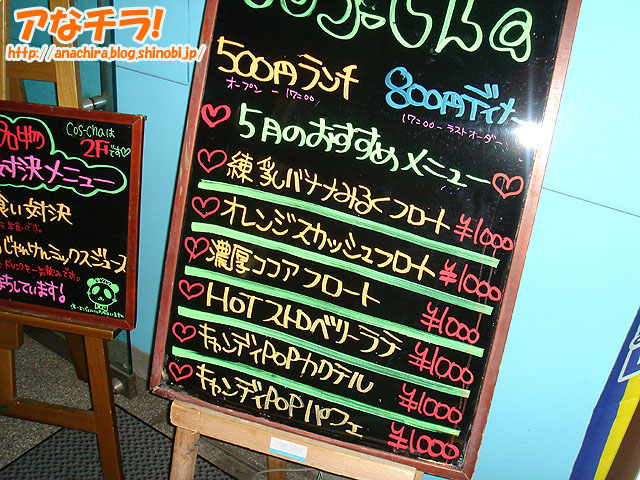 アなチラ!
http://anachira.blog.shinobi.jp/
Cos-Cha
500円ランチ
オープン－17:00
800円ディナー
17:00－ラストオーダー
5月のおすすめメニュー
練乳バナナみるくフロート ¥1000
オレンジスカッシュフロート ¥1000
濃厚ココアフロート ¥1000
HOTストロベリーラテ ¥1000
キャンディPOPカクテル ¥1000
キャンディPOPパフェ ¥1000
Cos-chaは
2Fです♡
対決メニュー
食い対決
じゃんけんミックスジュース
ちしています!